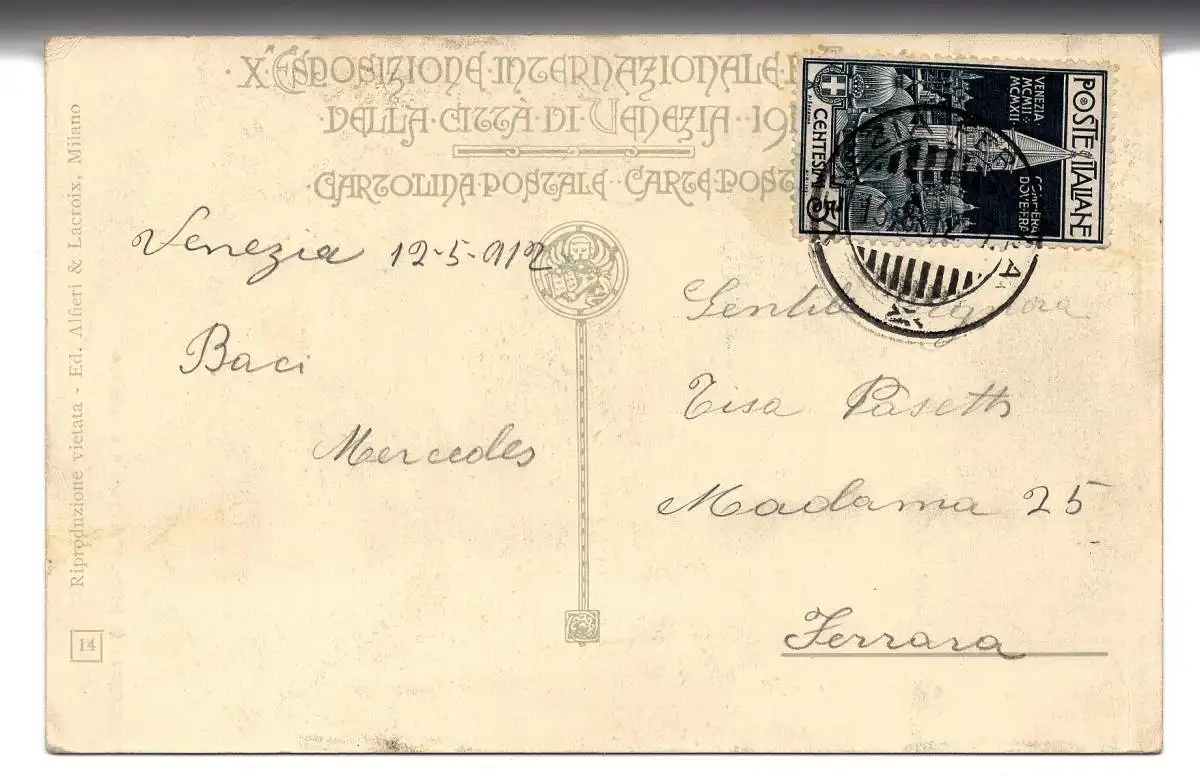 X ESPOSIZIONE INTERNAZIONALE
DELLA CITTÀ DI VENEZIA 191
CARTOLINA POSTALE CARTE POST
POSTE ITALIANE
VENEZIA
MCMII
MCMXII
COM'ERA
DOV'ERA
CENTESIMI 5
Venezia 12-5-912
Baci
Mercedes
Gentile Signora
Tisa Pasetti
Madama 25
Ferrara
Riproduzione vietata - Ed. Alfieri & Lacroix, Milano
14